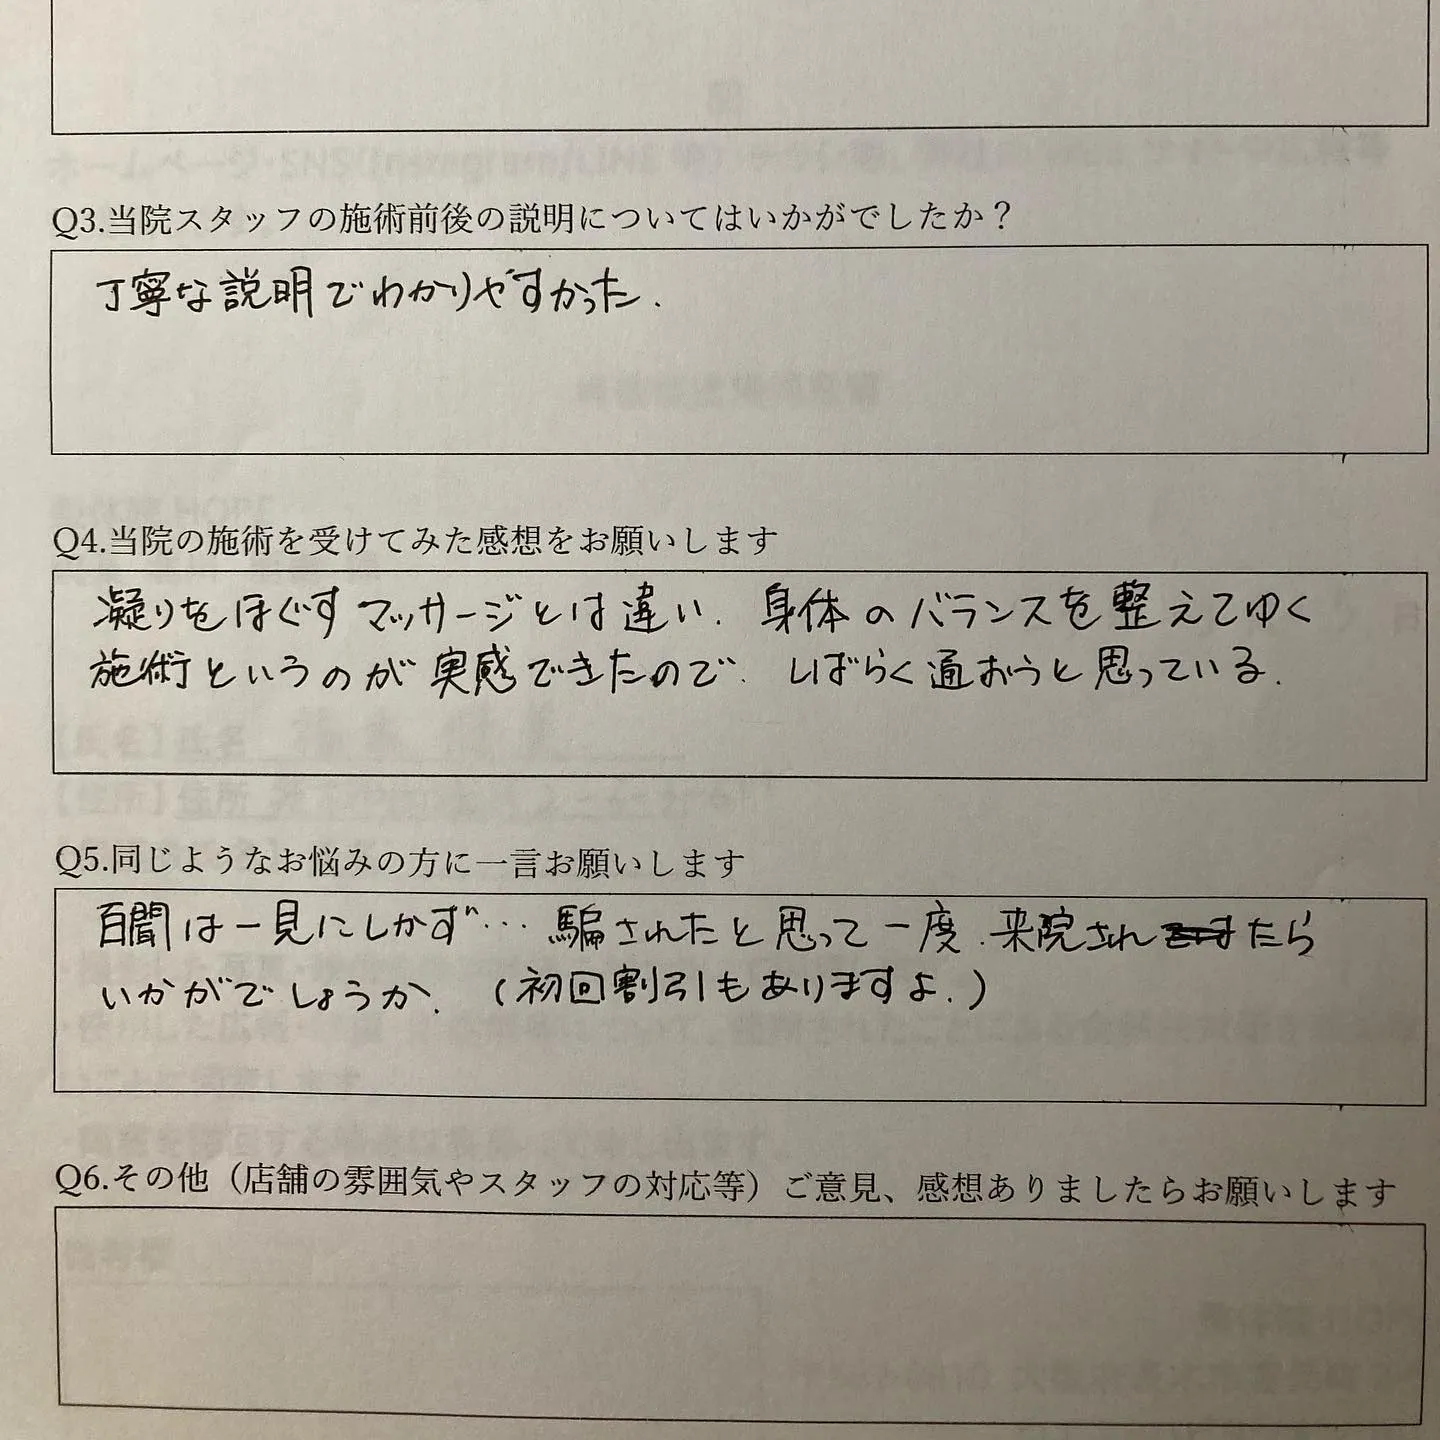 Q3.当院スタッフの施術前後の説明についてはいかがでしたか？
丁寧な説明でわかりやすかった.
Q4.当院の施術を受けてみた感想をお願いします
凝りをほぐすマッサージとは違い. 身体のバランスを整えてゆく
施術というのが実感できたので. しばらく通おうと思っている.
Q5.同じようなお悩みの方に一言お願いします
百聞は一見にしかず… 騙されたと思って一度. 来院されたら
いかがでしょうか. (初回割引もありますよ.)
Q6.その他（店舗の雰囲気やスタッフの対応等）ご意見、感想ありましたらお願いします